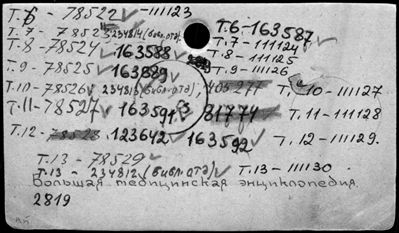 Т.6 - 78522 - 111123 Т.6-163587
Т.7 - 78523 234814 (библ.отд) Т.7-111124
Т-8-78524 163588 Т-8-111125
Т.9-78525 163589 Т.9-111126
Т.10-78526 234813 (библ.отд) 405277 Т.10-111127
Т.11-78527 163591 81774 Т.11-111128
Т.12-78528 123642 163592 Т.12-111129
Т.13-78529
Т.13-234812 (библ-отд) Т.13-111130
Большая медицинская энциклопедия
2819